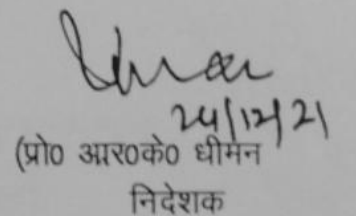 24/12/21
(प्रो० आर०के० धीमन
निदेशक